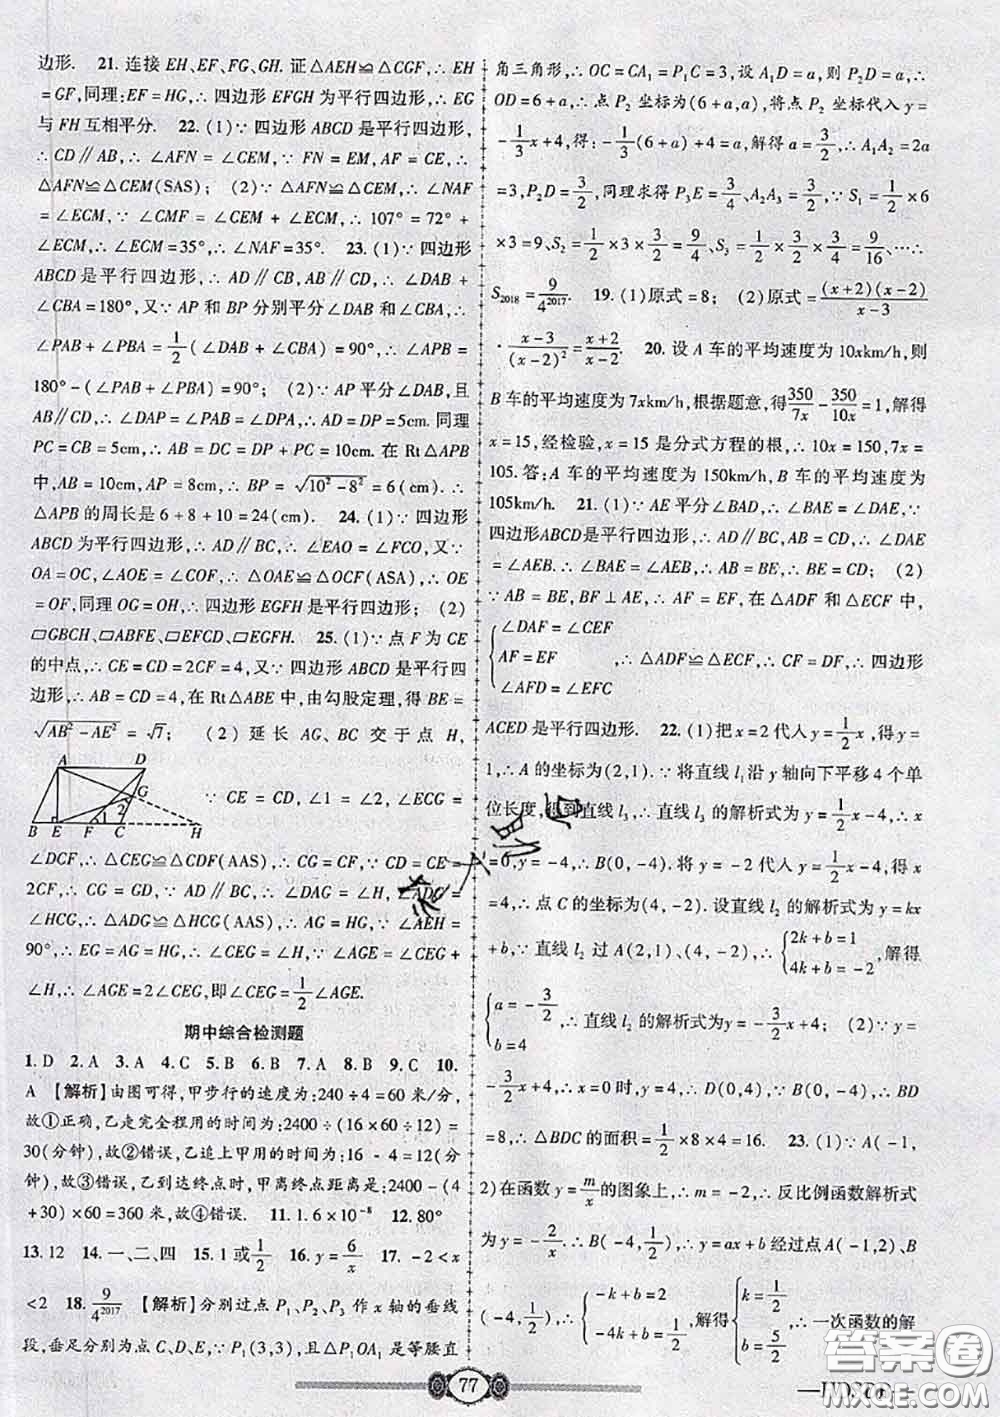 边形. 21. 连接 EH、EF、FG、GH. 证△AEH≌△CGF,∴ EH
=GF,同理:EF=HG,∴ 四边形 EFGH 为平行四边形,∴ EG
与 FH 互相平分. 22. (1)∵ 四边形 ABCD 是平行四边形,
∴ CD∥AB,∴ ∠AFN=∠CEM,∵ FN=EM,AF=CE,∴
△AFN≌△CEM(SAS); (2)∵ △AFN≌△CEM,∴ ∠NAF
=∠ECM,∵ ∠CMF=∠CEM+∠ECM,∴ 107°=72°+
∠ECM,∴ ∠ECM=35°,∴ ∠NAF=35°. 23. (1)∵ 四边形
ABCD 是平行四边形,∴ AD∥CB,AB∥CD,∴ ∠DAB+
∠CBA=180°,又∵ AP 和 BP 分别平分∠DAB 和∠CBA,∴
∠PAB+∠PBA=1/2(∠DAB+∠CBA)=90°,∴ ∠APB=
180°-(∠PAB+∠PBA)=90°; (2)∵ AP 平分∠DAB,且
AB∥CD,∴ ∠DAP=∠PAB=∠DPA,∴ AD=DP=5cm. 同理
PC=CB=5cm,∴ AB=DC=DP+PC=10cm. 在 Rt△APB
中,AB=10cm,AP=8cm,∴ BP=√(10²-8²)=6(cm).∴
△APB 的周长是 6+8+10=24(cm). 24. (1)∵ 四边形
ABCD 为平行四边形,∴ AD∥BC,∴ ∠EAO=∠FCO,又∵
OA=OC,∠AOE=∠COF,∴ △OAE≌△OCF(ASA),∴ OE
=OF,同理 OG=OH,∴ 四边形 EGFH 是平行四边形; (2)
▱GBCH、▱ABFE、▱EFCD、▱EGFH. 25. (1)∵ 点 F 为 CE
的中点,∴ CE=CD=2CF=4,又∵ 四边形 ABCD 是平行四
边形,∴ AB=CD=4,在 Rt△ABE 中,由勾股定理,得 BE=
√(AB²-AE²)=√7; (2) 延长 AG、BC 交于点 H,
A D G 2 1 B E F C H
∵ CE=CD,∠1=∠2,∠ECG=
∠DCF,∴ △CEG≌△CDF(AAS),∴ CG=CF,∵ CD=CE=
2CF,∴ CD=2CG,∵ AD∥BC,∴ ∠DAG=∠H,∠ADG=
∠HCG,∴ △ADG≌△HCG(AAS),∴ AG=HG,∵ ∠AEH=
90°,∴ EG=AG=HG,∴ ∠CEG=∠H,∵ ∠AGE=∠CEG+
∠H,∴ ∠AGE=2∠CEG,即∠CEG=1/2∠AGE.
期中综合检测题
1. D 2. A 3. A 4. C 5. B 6. B 7. A 8. B 9. C 10.
A 【解析】由图可得,甲步行的速度为:240÷4=60 米/分,
故①正确,乙走完全程用的时间为:2400÷(16×60÷12)=
30(分钟),故②错误,乙追上甲用的时间为:16-4=12(分
钟),故③错误,乙到达终点时,甲离终点距离是:2400-(4
+30)×60=360 米,故④错误. 11. 1.6×10⁻⁸ 12. 80°
13. 12 14. 一、二、四 15. 1 或 1/2 16. y=6/x 17. -2<x
<2 18. 9/4²⁰¹⁷ 【解析】分别过点 P₁、P₂、P₃ 作 x 轴的垂线
段,垂足分别为点 C、D、E,∵ P₁(3,3),且△P₁OA₁ 是等腰直
角三角形,∴ OC=CA₁=P₁C=3,设 A₁D=a,则 P₂D=a,∴
OD=6+a,∴ 点 P₂ 坐标为(6+a,a),将点 P₂ 坐标代入 y=
-1/3x+4,得:-1/3(6+a)+4=a,解得 a=3/2,∴ A₁A₂=2a
=3,P₂D=3/2,同理求得 P₃E=3/4、A₂A₃=3/2,∵ S₁=1/2×6
×3=9、S₂=1/2×3×3/2=9/4、S₃=1/2×3/2×3/4=9/16、…∴
S₂₀₁₈=9/4²⁰¹⁷. 19. (1)原式=8; (2)原式=(x+2)(x-2)/(x-3)
·(x-3)/(x-2)²=(x+2)/(x-2). 20. 设 A 车的平均速度为 10xkm/h,则
B 车的平均速度为 7xkm/h,根据题意,得350/7x-350/10x=1,解得
x=15,经检验,x=15 是分式方程的根,∴ 10x=150,7x=
105. 答:A 车的平均速度为 150km/h,B 车的平均速度为
105km/h. 21. (1)∵ AE 平分∠BAD,∴ ∠BAE=∠DAE,∵
四边形ABCD是平行四边形,∴ AD∥BC,∴ ∠DAE
=∠AEB.∴ ∠BAE=∠AEB,∴ AB=BE,∴ BE=CD; (2)
∵ AB=BE,BF⊥AE,∴ AF=EF,在△ADF 和△ECF 中,
{∠DAF=∠CEF
AF=EF ,∴ △ADF≌△ECF,∴ CF=DF,∴ 四边形
∠AFD=∠EFC
ACED 是平行四边形. 22. (1)把 x=2 代入 y=1/2x,得 y=
1,∴ A 的坐标为(2,1).∵ 将直线 l₁沿 y 轴向下平移 4 个单
位长度,得到直线 l₃,∴ 直线 l₃ 的解析式为 y=1/2x-4,∴ x
=0,y=-4,∴ B(0,-4). 将 y=-2 代入 y=1/2x-4,得 x
=4,∴ 点 C 的坐标为(4,-2). 设直线 l₂ 的解析式为 y=kx
+b,∵ 直线 l₂ 过 A(2,1)、(4,-2),∴ {2k+b=1 4k+b=-2,解得
{a=-3/2 b=4,∴ 直线 l₂ 的解析式为y=-3/2x+4; (2)∵ y=
-3/2x+4,∴ x=0 时,y=4,∴ D(0,4).∵ B(0,-4),∴ BD
=8,∴ △BDC 的面积=1/2×8×4=16. 23. (1)∵ A(-1,
2)在函数 y=m/x的图象上,∴ m=-2,∴ 反比例函数解析式
为 y=-2/x.∴ B(-4,1/2),∵ y=ax+b 经过点 A(-1,2)、B
(-4,1/2),∴ {-k+b=2 -4k+b=1/2,解得{k=1/2 b=5/2,∴ 一次函数的解
77
答案圈